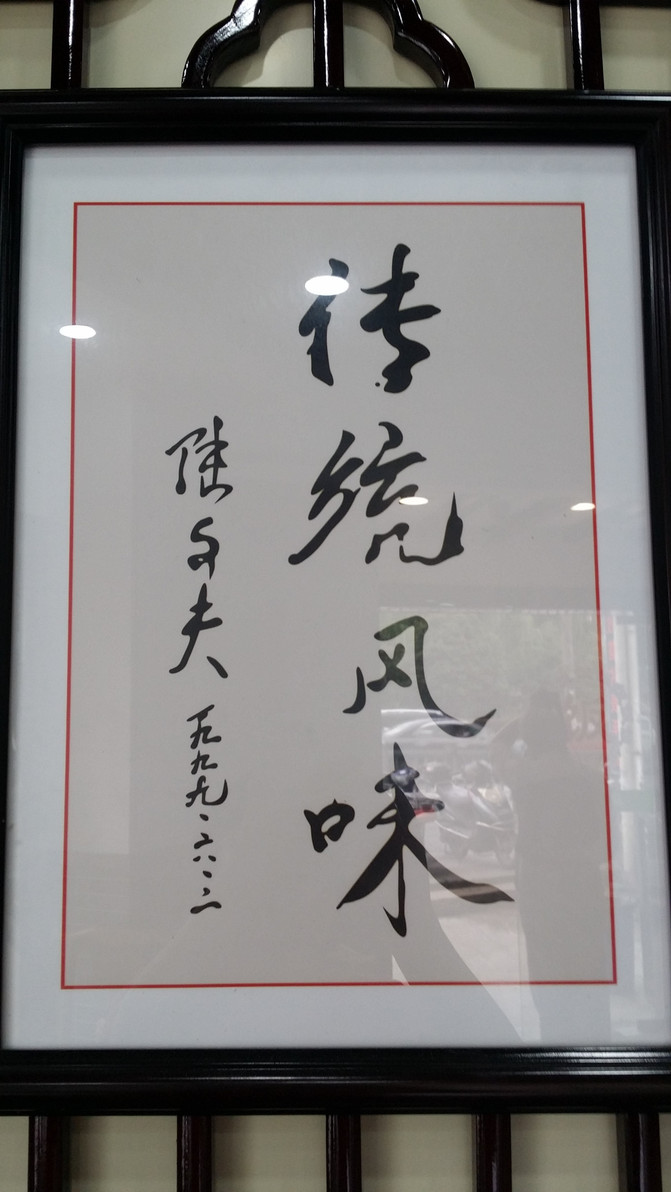 传统风味
陆文夫 一九九九、六、二